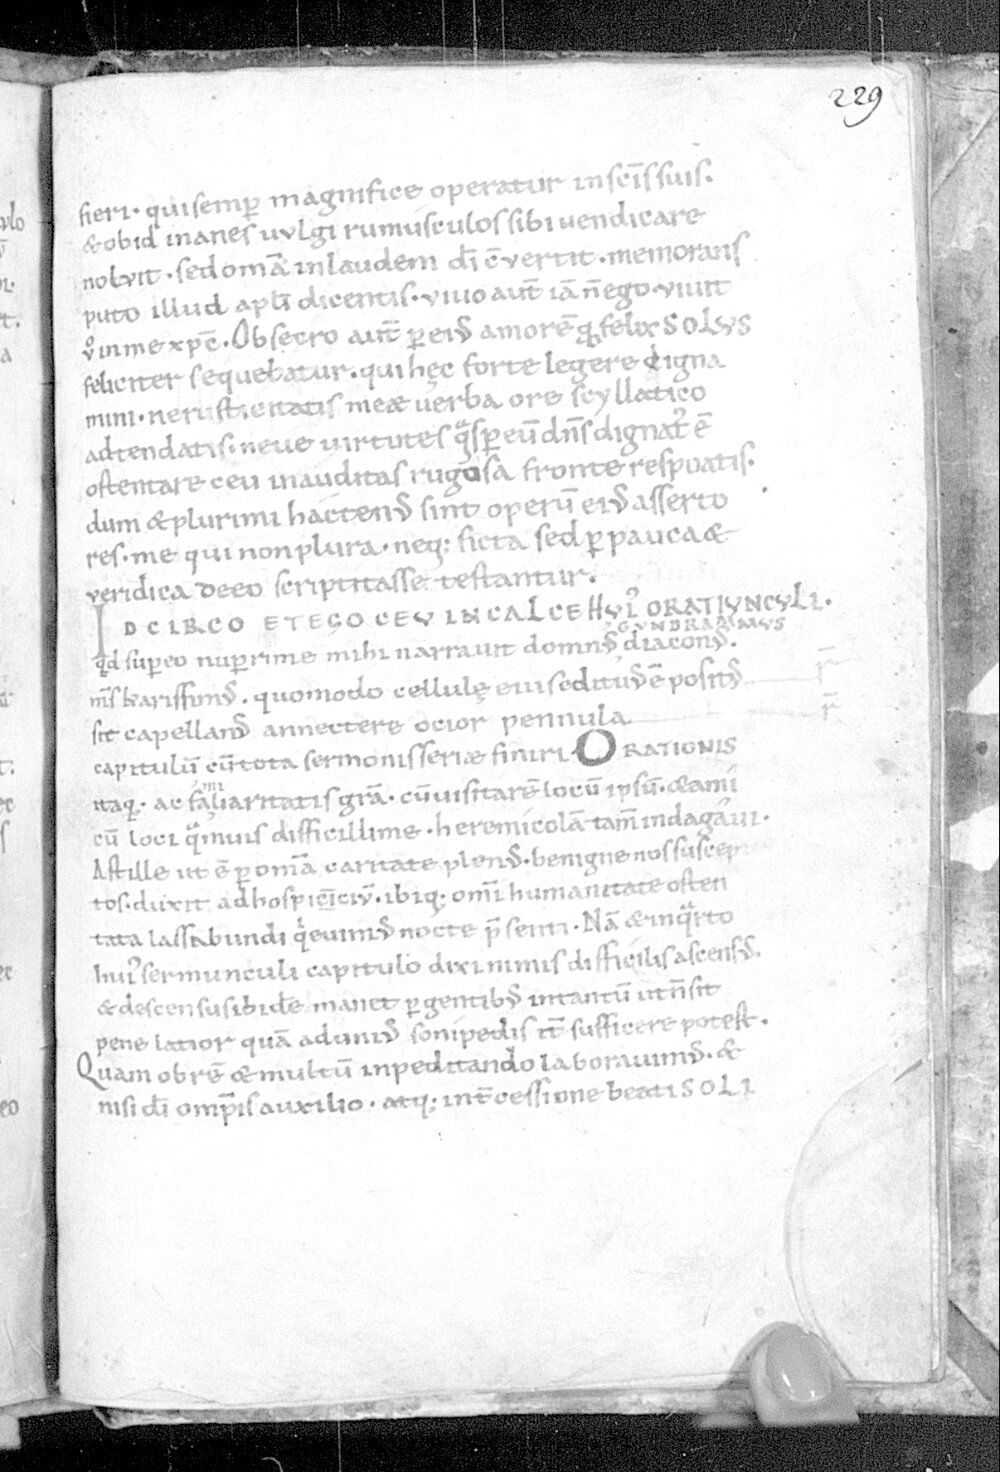 229
fieri · qui semp̄ magnifice operatur in sc̄is suis.
& ob id inanes vvlgi rumusculos sibi uendicare
nolvit · sed om̄a in laudem dī c̄vertit · memorans
puto illud apl̄i dicentis · vivo aut̄ iā n̄ ego · vivit
v̊ in me xp̄c · Obsecro aut̄ p̄ eiꝰ amorē q̄ felix SOLVS
feliciter sequebatur · qui hęc forte legere digna
mini · ne rusticitatis meæ uerba ore scyllatico
adtendatis · neue uirtutes q̊s p̄ eū dn̄s dignat᷒ ē
ostentare ceu inauditas rugosa fronte respuatis.
dum & plurimi hactenꝰ sint operū eiꝰ asserto
res · me qui non plura · neq; ficta sed p̄ pauca &
veridica de eo scriptitasse testantur.
IDCIRCO ET EGO CEV IN CALCE HVI᷒ ORATIVNCVLI.
GVNDRAMMVS
qd̄ super eo nup̄rime mihi narrauit domnꝰ diaconꝰ.
m̄s karissimꝰ · quomodo cellulę eius edituꝰ ē positꝰ r̄
sit capellanꝰ annectere ocior pennula r̄
capitulū cū tota sermonis serie finiri · ORATIONIS
itaq; · ac fāliaritatis grā · cū uisitarē locū ipsū · & ami
mi
cū loci q̊muis difficillime · heremicolā tam̄ indagaui ·
Ast ille ut ē p̄ om̄a caritate plenꝰ · benigne nos suscep
tos · duxit ad hospiciū · ibiq; om̄i humanitate osten
tata lassabundi q̊euimꝰ nocte p̄senti · Nā & in q̊rto
hui᷒ sermunculi capitulo dixi nimis difficilis ascensꝰ.
& descensus ibidē manet p̄gentibꝰ intantū ut n̄ sit
pene latior quā ad uniꝰ sonipedis it̄ sufficere potest.
Quam ob rē & multū in peditando laborauimꝰ · &
nisi dī omp̄is auxilio · atq; int̄cessione beati SOLI